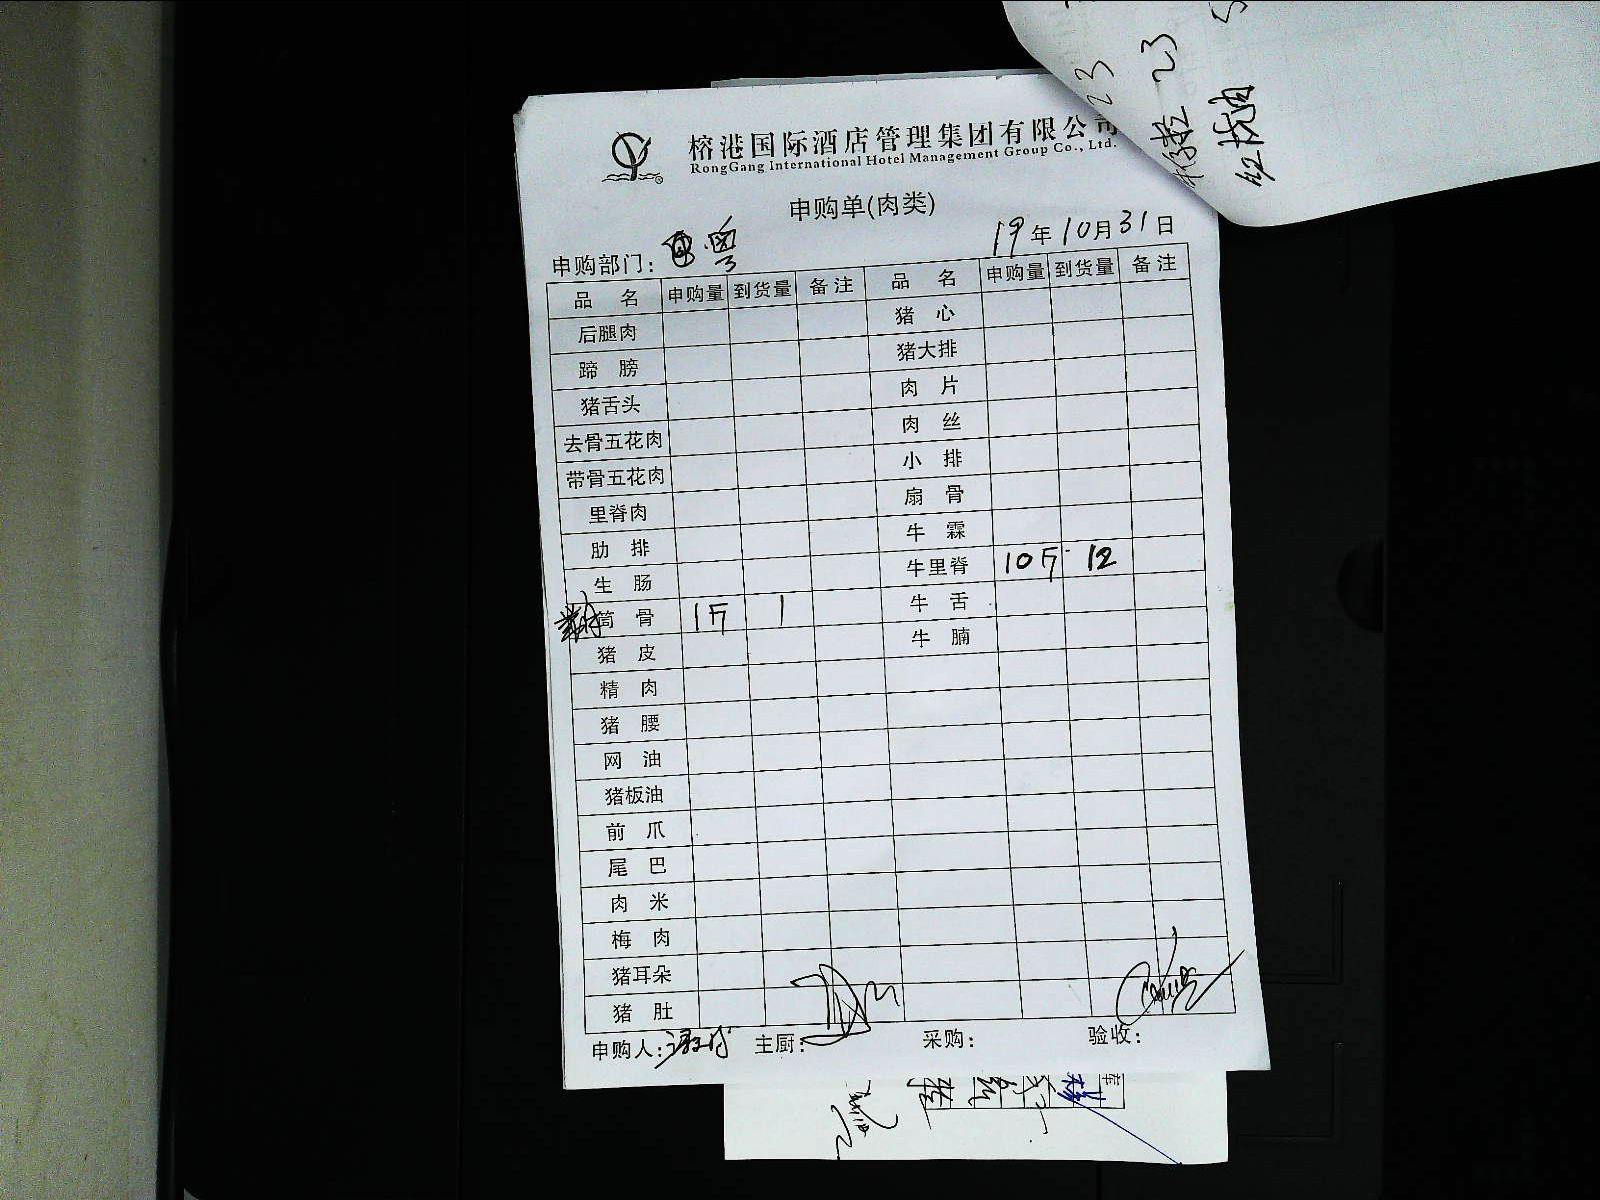 榕港国际酒店管理集团有限公司
RongGang International Hotel Management Group Co., Ltd.
申购单(肉类)
申购部门: 19年10月31日
品名 申购量 到货量 备注 品名 申购量 到货量 备注
后腿肉 猪心
蹄膀 猪大排
猪舌头 肉片
去骨五花肉 肉丝
带骨五花肉 小排
里脊肉 扇骨
肋排 牛霖
生肠 牛里脊 10斤 12
筒骨 1斤 1 牛舌
猪皮 牛腩
精肉
猪腰
网油
猪板油
前爪
尾巴
肉米
梅肉
猪耳朵
猪肚
申购人: 主厨: 采购: 验收:
23
23